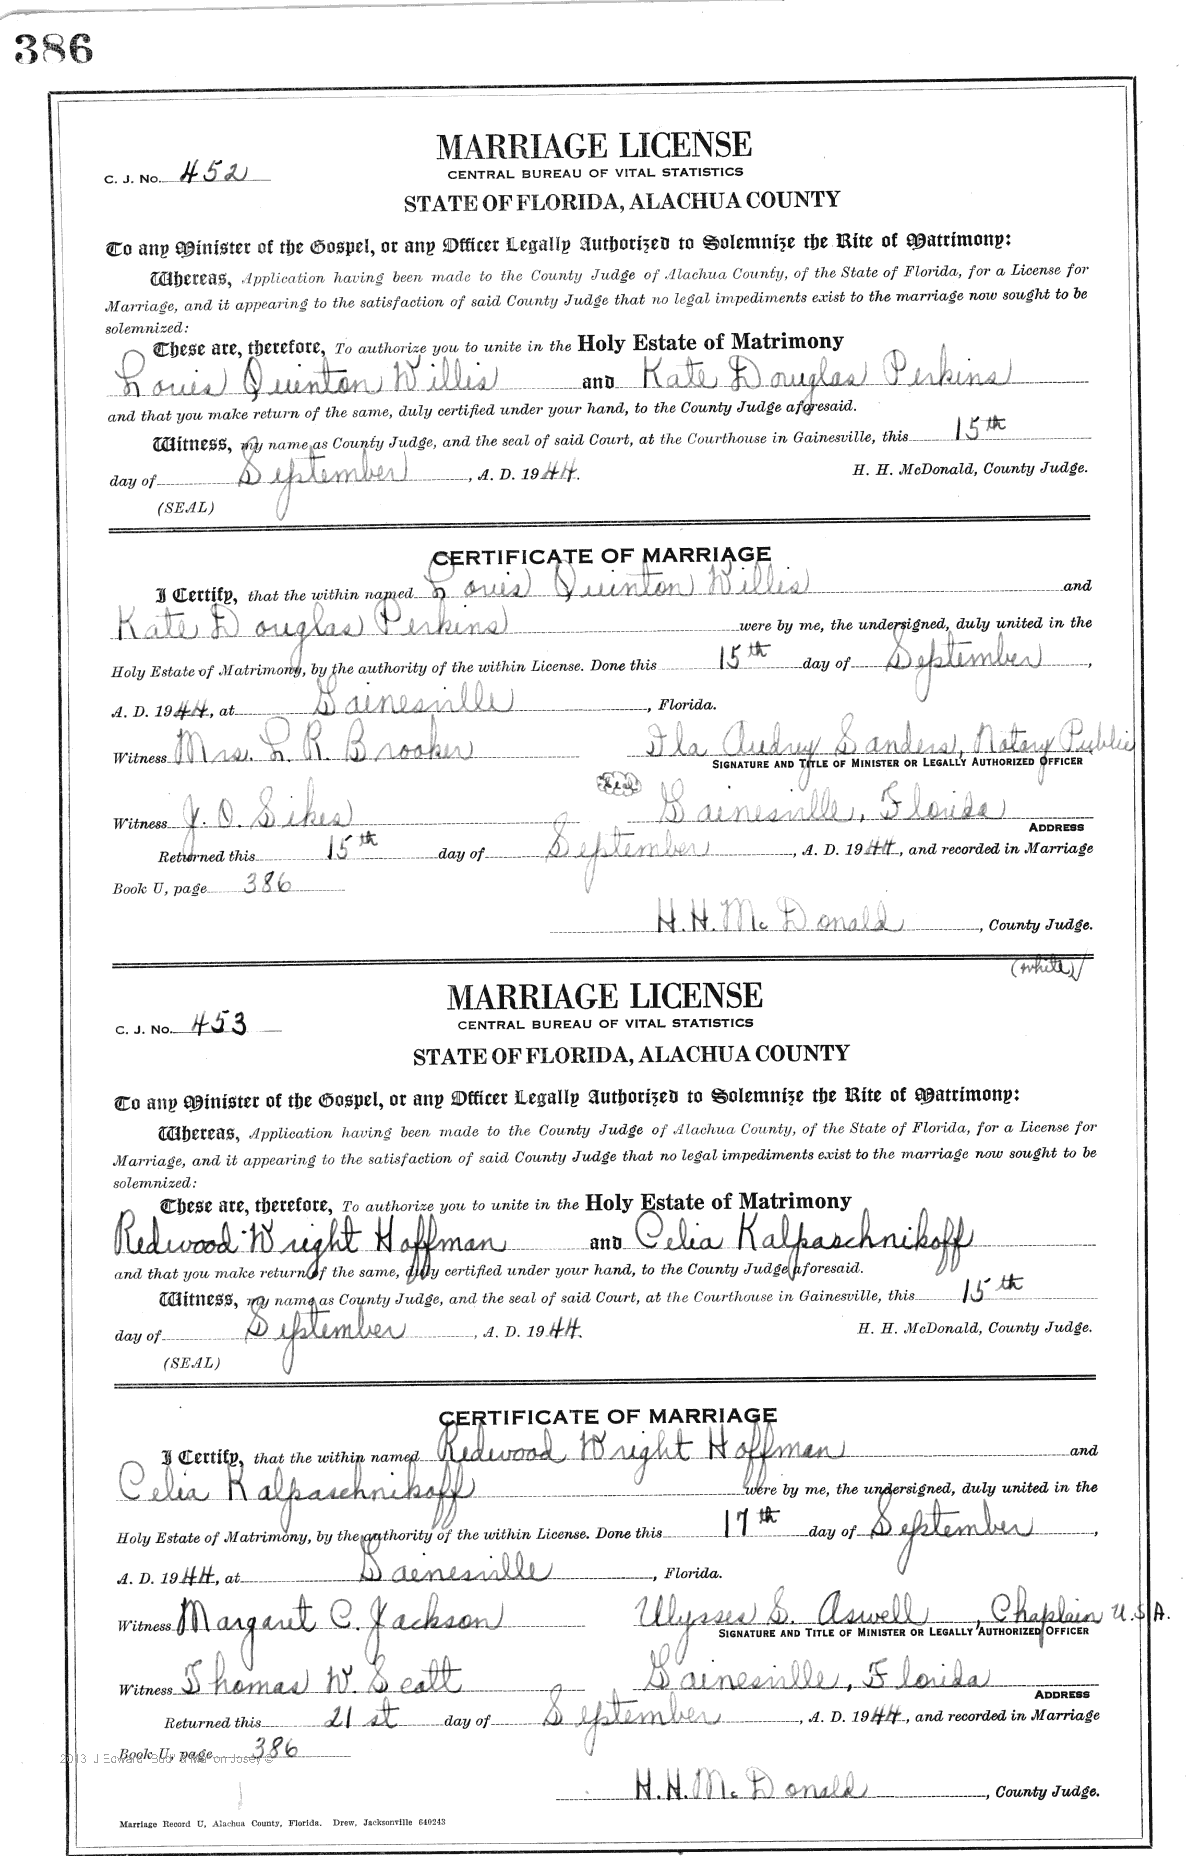 386
MARRIAGE LICENSE
C. J. No. 452
CENTRAL BUREAU OF VITAL STATISTICS
STATE OF FLORIDA, ALACHUA COUNTY
To any Minister of the Gospel, or any Officer Legally Authorized to Solemnize the Rite of Matrimony:
Whereas, Application having been made to the County Judge of Alachua County, of the State of Florida, for a License for
Marriage, and it appearing to the satisfaction of said County Judge that no legal impediments exist to the marriage now sought to be
solemnized:
These are, therefore, To authorize you to unite in the Holy Estate of Matrimony
Louis Quinton Willis and Kate Douglas Perkins
and that you make return of the same, duly certified under your hand, to the County Judge aforesaid.
Witness, my name as County Judge, and the seal of said Court, at the Courthouse in Gainesville, this 15th
day of September, A. D. 1944. H. H. McDonald, County Judge.
(SEAL)
CERTIFICATE OF MARRIAGE
I Certify, that the within named Louis Quinton Willis and
Kate Douglas Perkins were by me, the undersigned, duly united in the
Holy Estate of Matrimony, by the authority of the within License. Done this 15th day of September,
A. D. 1944, at Gainesville, Florida.
Witness Mrs. L. R. Brooker Ila Audrey Sanders, Notary Public
SIGNATURE AND TITLE OF MINISTER OR LEGALLY AUTHORIZED OFFICER
Seal
Witness J. O. Sikes Gainesville, Florida
ADDRESS
Returned this 15th day of September, A. D. 1944, and recorded in Marriage
Book U, page 386
H. H. McDonald, County Judge.
(white)
MARRIAGE LICENSE
C. J. No. 453
CENTRAL BUREAU OF VITAL STATISTICS
STATE OF FLORIDA, ALACHUA COUNTY
To any Minister of the Gospel, or any Officer Legally Authorized to Solemnize the Rite of Matrimony:
Whereas, Application having been made to the County Judge of Alachua County, of the State of Florida, for a License for
Marriage, and it appearing to the satisfaction of said County Judge that no legal impediments exist to the marriage now sought to be
solemnized:
These are, therefore, To authorize you to unite in the Holy Estate of Matrimony
Redwood Wright Hoffman and Celia Kalpaschnikoff
and that you make return of the same, duly certified under your hand, to the County Judge aforesaid.
Witness, my name as County Judge, and the seal of said Court, at the Courthouse in Gainesville, this 15th
day of September, A. D. 1944. H. H. McDonald, County Judge.
(SEAL)
CERTIFICATE OF MARRIAGE
I Certify, that the within named Redwood Wright Hoffman and
Celia Kalpaschnikoff were by me, the undersigned, duly united in the
Holy Estate of Matrimony, by the authority of the within License. Done this 17th day of September,
A. D. 1944, at Gainesville, Florida.
Witness Margaret C. Jackson Ulysses S. Aswell, Chaplain U.S.A.
SIGNATURE AND TITLE OF MINISTER OR LEGALLY AUTHORIZED OFFICER
Witness Thomas W. Scott Gainesville, Florida
ADDRESS
Returned this 21st day of September, A. D. 1944, and recorded in Marriage
Book U, page 386
2013 J Edward
H. H. McDonald, County Judge.
Marriage Record U, Alachua County, Florida. Drew, Jacksonville 640243